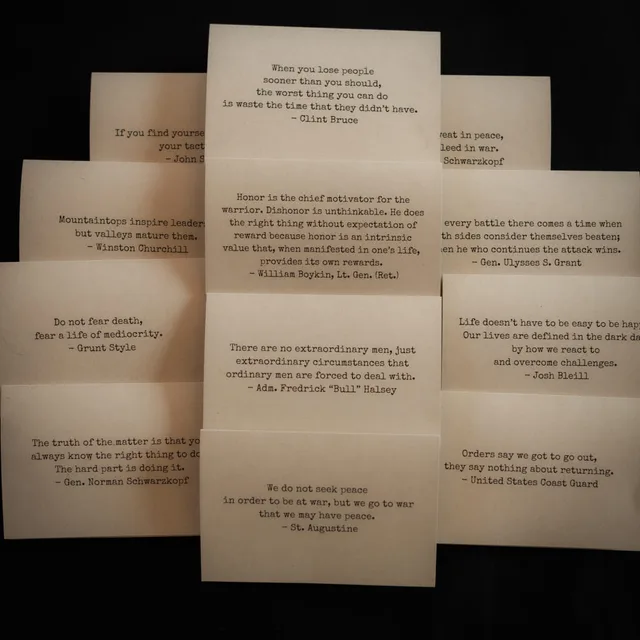 When you lose people
sooner than you should,
the worst thing you can do
is waste the time that they didn't have.
– Clint Bruce
If you find
your
– John
in peace,
in war.
Schwarzkopf
Mountaintops inspire
but valleys mature them.
– Winston Churchill
Honor is the chief motivator for the
warrior. Dishonor is unthinkable. He does
the right thing without expectation of
reward because honor is an intrinsic
value that, when manifested in one's life,
provides its own rewards.
– William Boykin, Lt. Gen. (Ret.)
every battle there comes a time when
sides consider themselves beaten;
he who continues the attack wins.
– Gen. Ulysses S. Grant
Do not fear death,
fear a life of mediocrity.
– Grunt Style
There are no extraordinary men, just
extraordinary circumstances that
ordinary men are forced to deal with.
– Adm. Fredrick “Bull” Halsey
Life doesn't have to be easy to be
Our lives are defined in the dark
by how we react to
and overcome challenges.
– Josh Bleill
The truth of the matter is that
always know the right thing to
The hard part is doing it.
– Gen. Norman Schwarzkopf
We do not seek peace
in order to be at war, but we go to war
that we may have peace.
– St. Augustine
Orders say we got to go out,
they say nothing about returning.
– United States Coast Guard